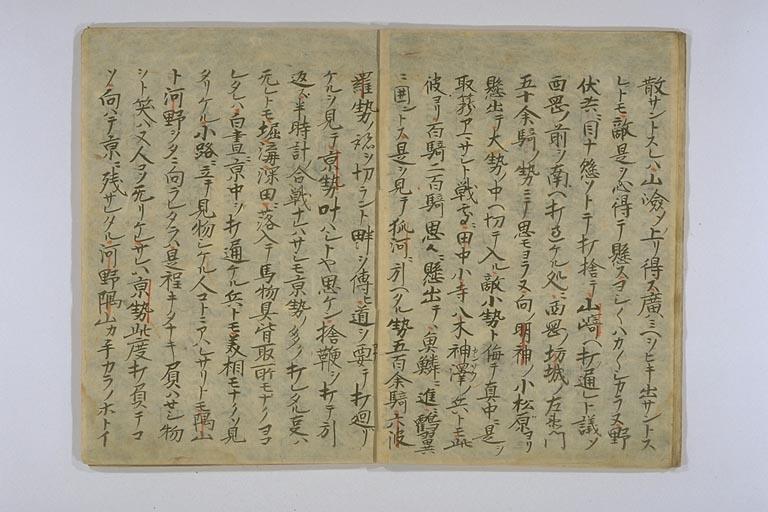 散サントスレハ山嶮〆上リ得ス廣ミヘヲヒキ出サントス
レトモ敵是ヲ心得テ懸スヨシ〱ハカ〱シカラヌ野
伏共ニ目ナ懸ソトテ打捨テ山崎ヘ打通ント議〆
西罡ノ前ヲ南ヘ打ケル処ニ西罡ノ坊城ノ左衛門
五十余騎ノ勢ニテ思モヨラヌ向ノ明神ノ小松原ヨリ
懸出テ大勢ノ中ヘ切テ入ル敵小勢ト侮テ真中ニ是ヲ
取サント戦田中小寺八木神澤ノ兵トモ此
彼ヨリ百騎二百騎思々ニ懸出テ魚鱗ニ進ミ鶴翼
ニ囲ントス是ヲ見テ狐河ニ引ヘタル勢五百余騎六波
羅勢ノ跡ヲ切ラント畔ヲ傳ヒ道ヲ要テ打廻リ
ケルヲ見テ京勢叶ハシトヤ思ケン捨鞭ヲ打テ引
返ス半時計ノ合戦ナレハサシモ京勢ノ多ク打レタル支ハ
无レトモ堀溝深田ニ落入テ馬物具皆取所モナクヨコ
レタレハ白晝ニ京中ヲ打通ケル兵トモ美相モナクソ見
タリケル小路ニ立テ見物シケル人コトニアハレサリトモ隅山
ト河野トヲタニ向ラレタラハ是程キタナキ負ハセシ物
ヲト笑ハヌ人コソ无リケレサレハ京勢此度打負テコ
ソ向ハテ京ニ残サレタル河野隅山カ手カラノホトイ